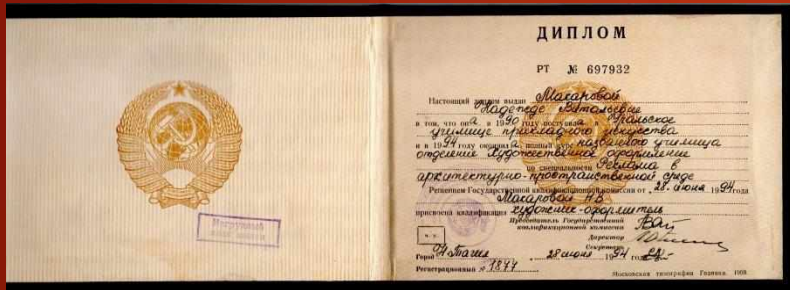 ДИПЛОМ
РТ № 697932
Настоящий диплом выдан Макаровой
Надежде Витальевне
в том, что она в 1990 году поступила в Уральское
училище прикладного искусства
и в 1994 году окончила полный курс названного училища
отделение Художественное оформление
по специальности Реклама в
архитектурно-пространственной среде
Решением Государственной квалификационной комиссии от „28" июня 1994 года
Макаровой Н.В.
присвоена квалификация художник-оформитель
Председатель Государственной
квалификационной комиссии
Директор
М. П.
Секретарь
Город Н-Тагил 28 июня 1994 года
Регистрационный № 1877
Московская типография Гознака.